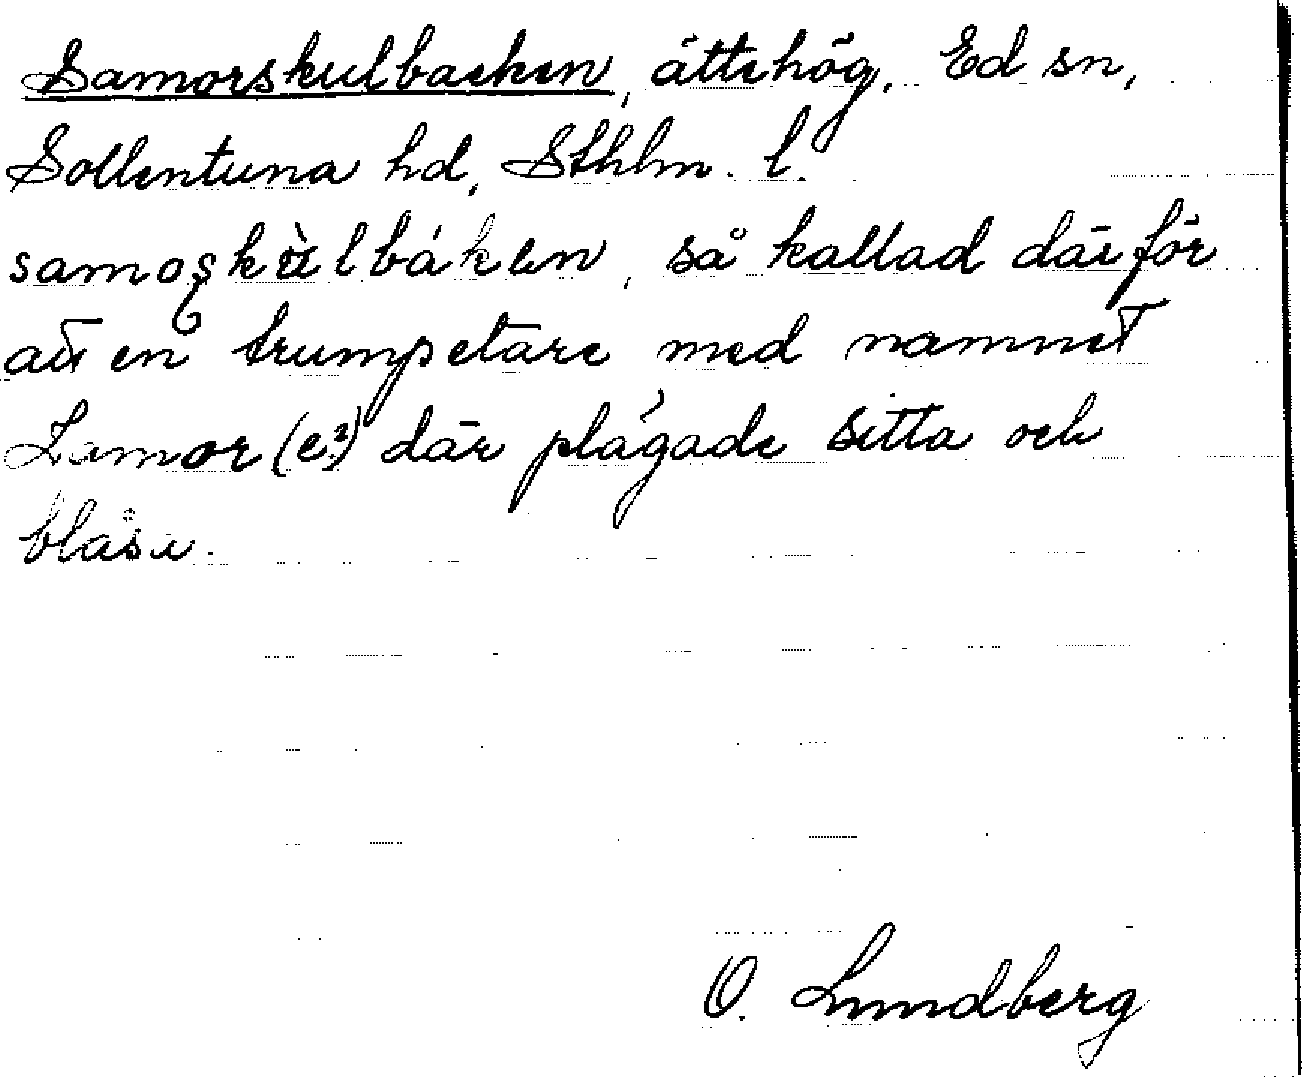 Samorskulbacken, ättehög, Ed sn,
Sollentuna hd, Sthlm. l.
så kallad därför
att en trumpetare med namnet
Zamor (e²) där plägade sitta och
blåsa.
O. Lundberg